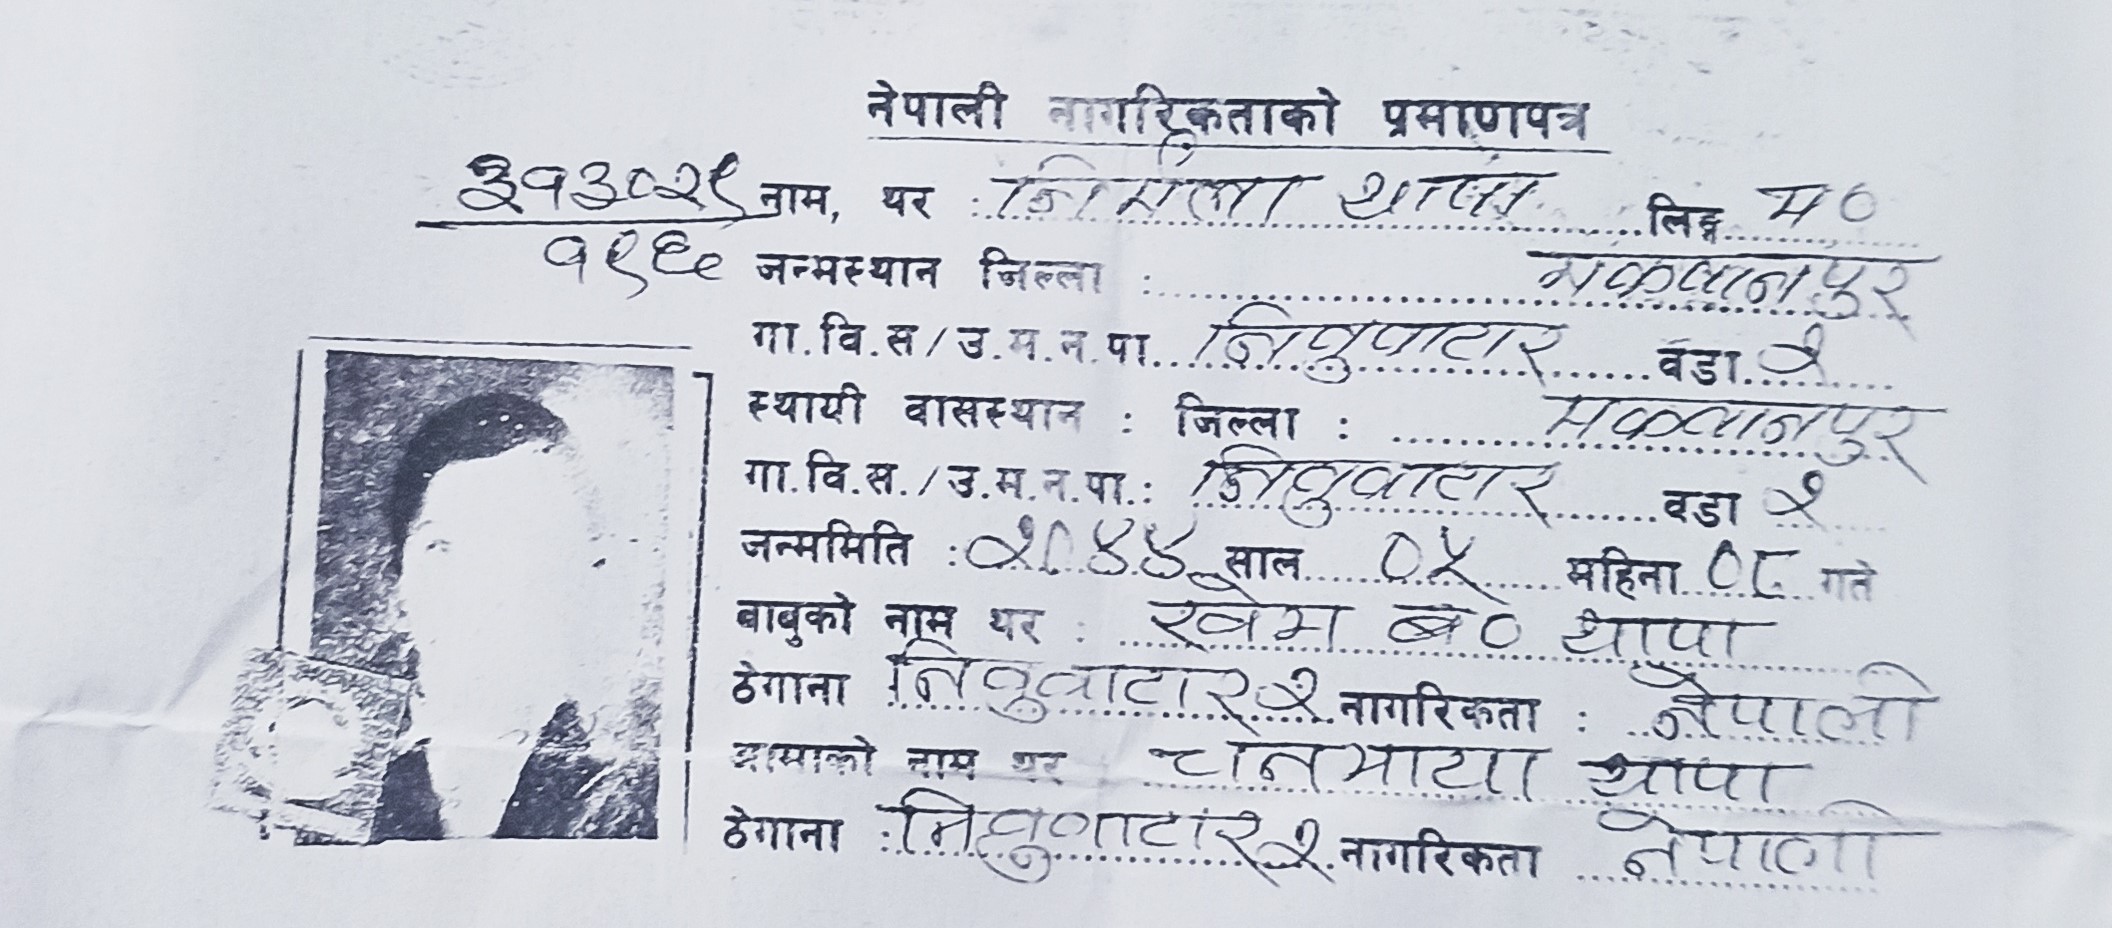 नेपाली नागरिकताको प्रमाणपत्र
३१३०२९ नाम, थर : निर्मला थापा लिङ्ग म०
१९६८ जन्मस्थान जिल्ला : मकवानपुर
गा.वि.स/उ.म.न.पा. निबुवाटार वडा २
स्थायी वासस्थान : जिल्ला : मकवानपुर
गा.वि.स./उ.म.न.पा.: निबुवाटार वडा २
जन्ममिति : २०४४ साल ०५ महिना ०८ गते
बाबुको नाम थर : खेम ब० थापा
ठेगाना निबुवाटार २ नागरिकता : नेपाली
आमाको नाम थर थापा
ठेगाना : निबुवाटार २ नागरिकता नेपाली